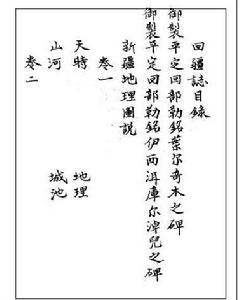 回疆誌目錄
御製平定回部勒銘葉尔奇木之碑
御製平定回部勒銘伊西洱庫尔淖兒之碑
新疆地理圖説
卷一
天時　地理
山河　城池
卷二